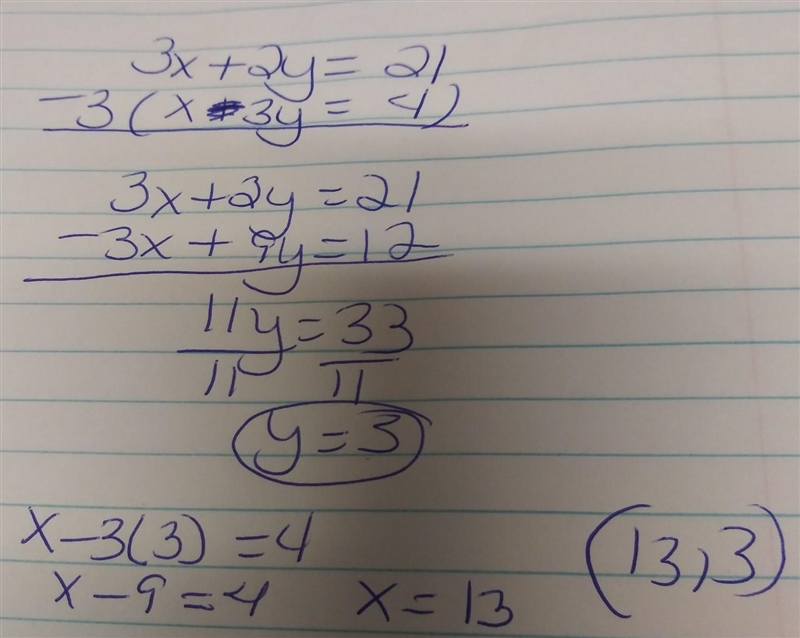 3x + 2y = 21
-3(x - 3y = 4)
3x + 2y = 21
-3x + 9y = 12
11y = 33
11 11
y = 3
x - 3(3) = 4
x - 9 = 4 x = 13 (13, 3)